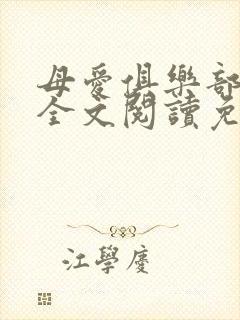 母愛俱樂部
全文閱讀免
江學慶